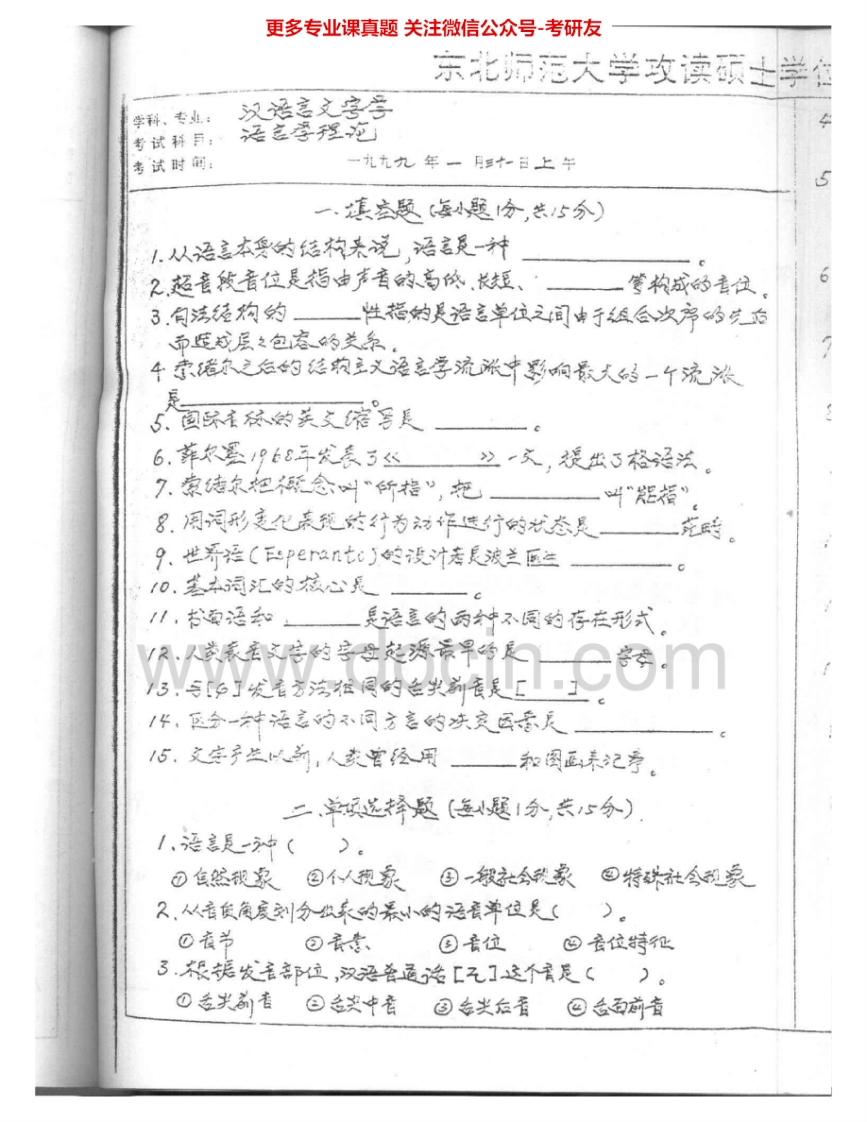 更多专业课真题 关注微信公众号-考研友
东北师范大学攻读硕士学位
学科、专业： 汉语言文字学
考试科目： 语言学理论
考试时间： 一九九九年一月三十一日上午
一、填空题（每小题1分，共15分）
1.从语言本身的结构来说，语言是一种 。
2.超音段音位是指由声音的高低、长短、 等构成的音位。
3.句法结构的 性指的是语言单位之间由于组合次序的先后
而造成层层包容的关系。
4 索绪尔之后的结构主义语言学流派中影响最大的一个流派
是 。
5.国际音标的英文缩写是 。
6.菲尔墨1968年发表了《 》一文，提出了格语法。
7.索绪尔把概念叫“所指”，把 叫“能指”。
8.用词形变化表现的行为动作进行的状态是 范畴。
9.世界语（Esperanto）的设计者是波兰医生 。
10.基本词汇的核心是 。
11.书面语和 是语言的两种不同的存在形式。
12.人类表音文字的字母起源最早的是 字母。
13.与[ ]发音方法相同的舌尖前音是[ ]。
14.区分一种语言的不同方言的决定因素是 。
15.文字产生以前，人类曾经用 和图画来记事。
二、单项选择题（每小题1分，共15分）.
1.语言是一种（ ）。
①自然现象 ②个人现象 ③一般社会现象 ④特殊社会现象
2.从音质角度划分出来的最小的语音单位是（ ）。
①音节 ②音素 ③音位 ④音位特征
3.根据发音部位，汉语普通话[ ]这个音是（ ）。
①舌尖前音 ②舌尖中音 ③舌尖后音 ④舌面前音
4
5
6
7
www.docin.com